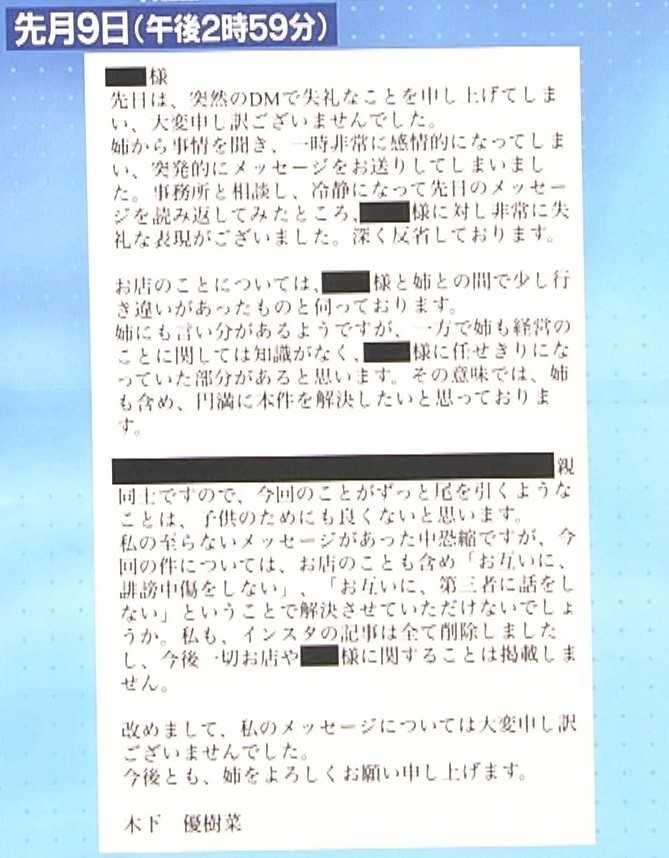 先月9日(午後2時59分)
様
先日は、突然のDMで失礼なことを申し上げてしま
い、大変申し訳ございませんでした。
姉から事情を聞き、一時非常に感情的になってしま
い、突発的にメッセージをお送りしてしまいまし
た。事務所と相談し、冷静になって先日のメッセー
ジを読み返してみたところ、様に対し非常に失
礼な表現がございました。深く反省しております。
お店のことについては、様と姉との間で少し行
き違いがあったものと伺っております。
姉にも言い分があるようですが、一方で姉も経営の
ことに関しては知識がなく、様に任せきりにな
っていた部分があると思います。その意味では、姉
も含め、円満に本件を解決したいと思っておりま
す。
親
同士ですので、今回のことがずっと尾を引くような
ことは、子供のためにも良くないと思います。
私の至らないメッセージがあった中恐縮ですが、今
回の件については、お店のことも含め「お互いに、
誹謗中傷をしない」、「お互いに、第三者に話をし
ない」ということで解決させていただけないでしょ
うか。私も、インスタの記事は全て削除しました
し、今後一切お店や様に関することは掲載しま
せん。
改めまして、私のメッセージについては大変申し訳
ございませんでした。
今後とも、姉をよろしくお願い申し上げます。
木下 優樹菜